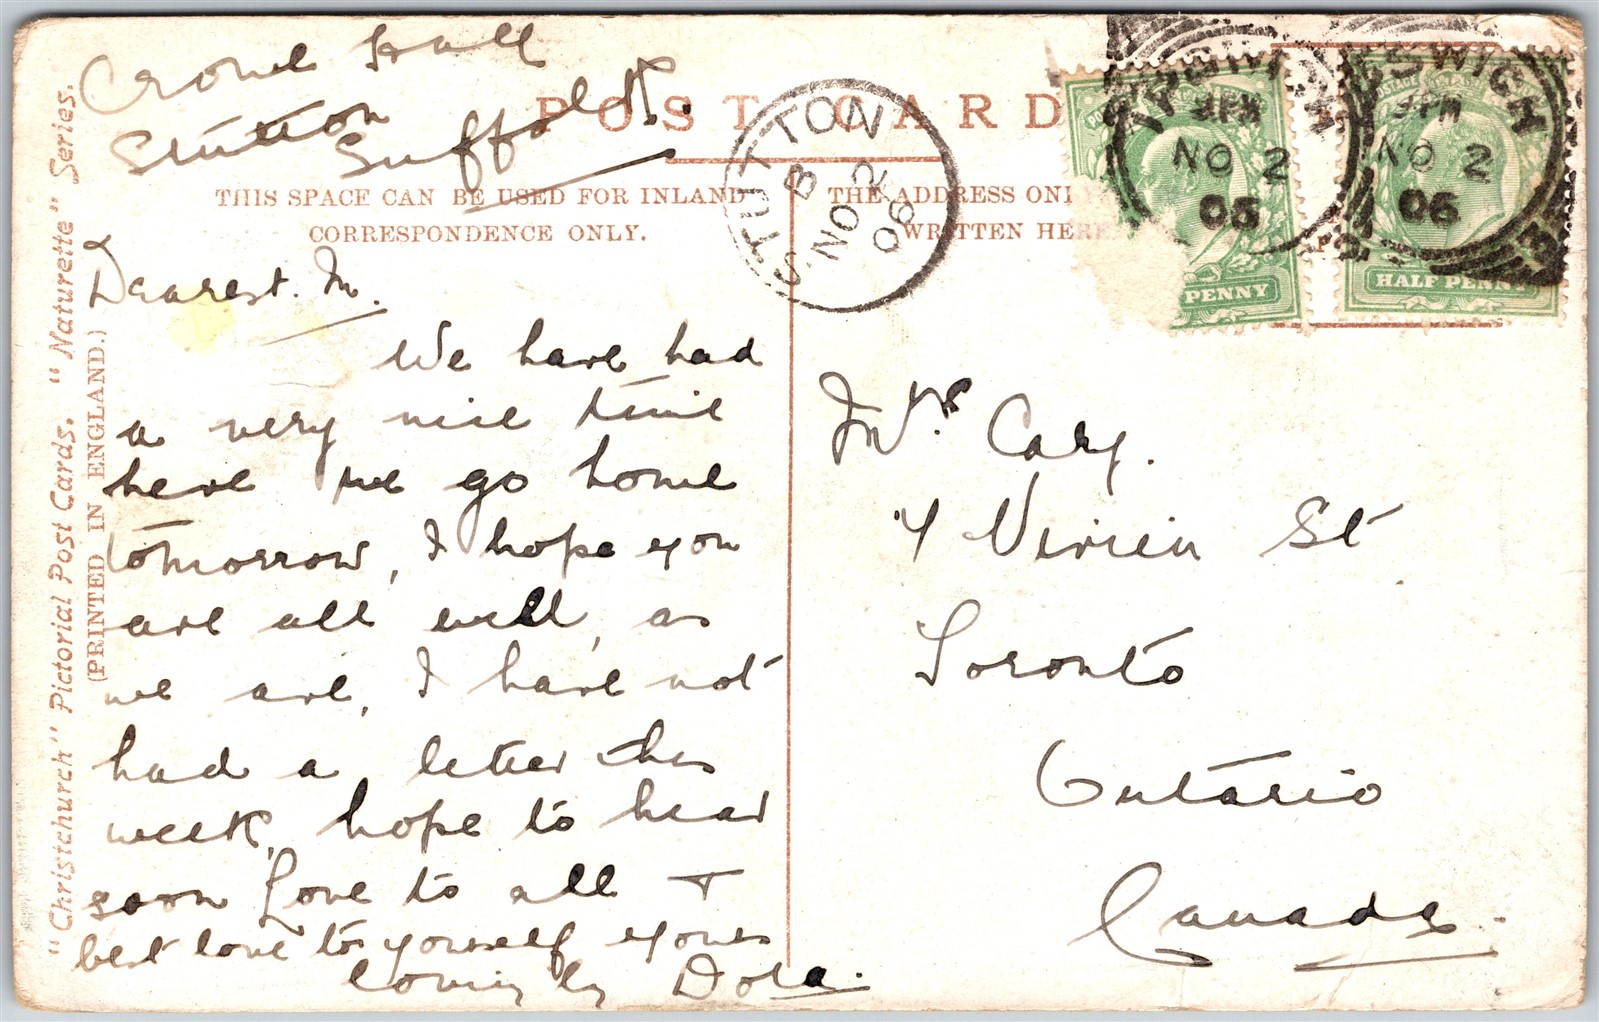 Crowe Hall
Stutton
Suffolk.
POST CARD
THIS SPACE CAN BE USED FOR INLAND
CORRESPONDENCE ONLY.
THE ADDRESS ONLY
WRITTEN HERE.
STUTTON
B
NO 2
06
IPSWICH
4PM
NO 2
06
PENNY
IPSWICH
4PM
NO 2
06
HALF PENNY
"Christchurch" Pictorial Post Cards. "Naturette" Series.
(PRINTED IN ENGLAND.)
Dearest. M.
We have had
a very nice time
here we go home
tomorrow, I hope you
are all well, as
we are, I have not
had a letter this
week, hope to hear
soon Love to all +
best love to yourself yours
lovingly Dola.
Mrs. Cary.
7 Vivien St
Toronto
Ontario
Canada.